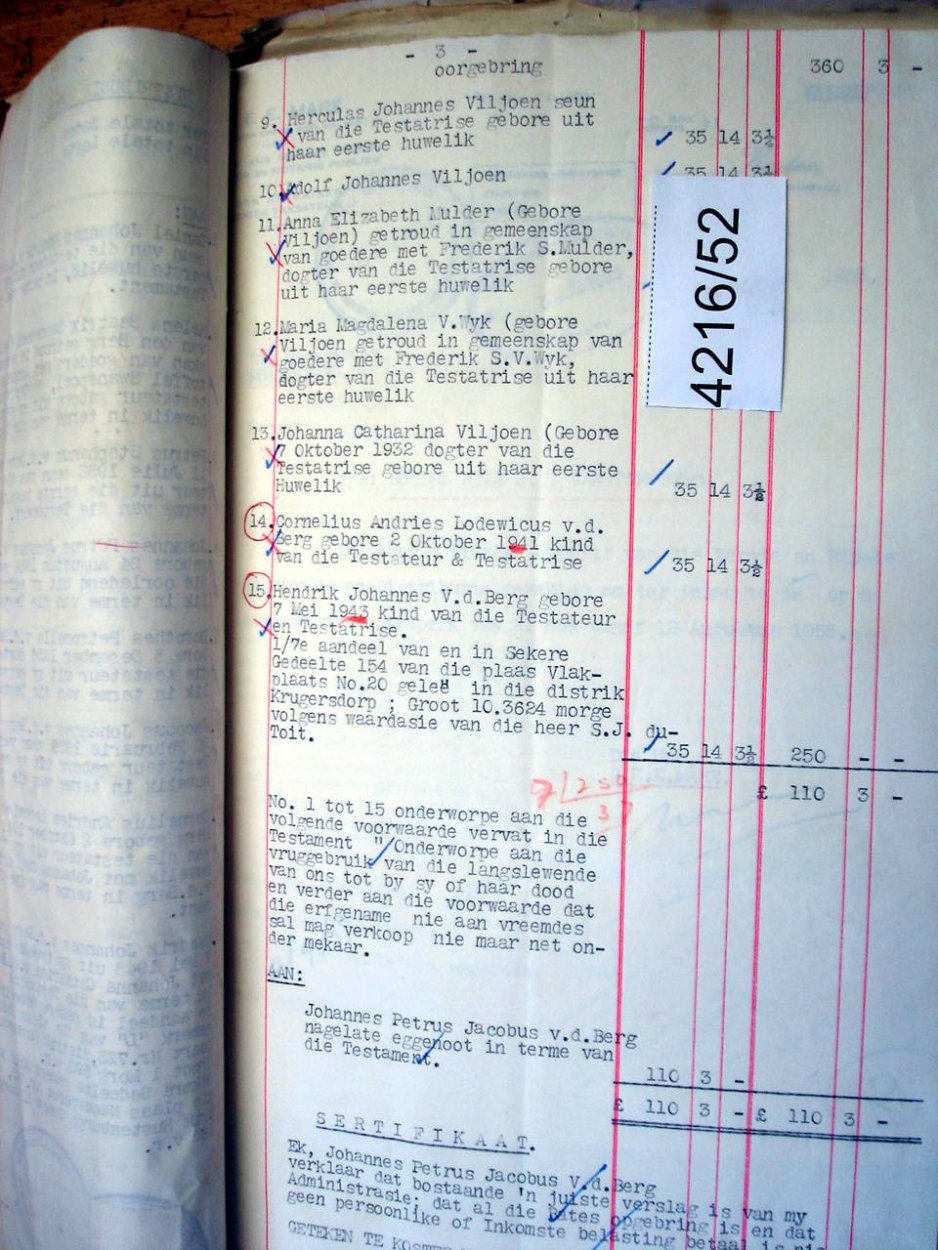 - 3 -
oorgebring 360 3 -
9. Herculas Johannes Viljoen seun
van die Testatrise gebore uit
haar eerste huwelik 35 14 3½
10. Adolf Johannes Viljoen 35 14 3½
11. Anna Elizabeth Mulder (Gebore
Viljoen) getroud in gemeenskap
van goedere met Frederik S.Mulder,
dogter van die Testatrise gebore
uit haar eerste huwelik
4216/52
12. Maria Magdalena V.Wyk (gebore
Viljoen getroud in gemeenskap van
goedere met Frederik S.V.Wyk,
dogter van die Testatrise uit haar
eerste huwelik
13. Johanna Catharina Viljoen (Gebore
7 Oktober 1932 dogter van die
Testatrise gebore uit haar eerste
Huwelik 35 14 3½
14. Cornelius Andries Lodewicus v.d.
Berg gebore 2 Oktober 1941 kind
van die Testateur & Testatrise 35 14 3½
15. Hendrik Johannes V.d.Berg gebore
7 Mei 1943 kind van die Testateur
en Testatrise.
1/7e aandeel van en in Sekere
Gedeelte 154 van die plaas Vlak-
plaats No.20 geleë in die distrik
Krugersdorp ; Groot 10.3624 morge
volgens waardasie van die heer S.J. du-
Toit. 35 14 3½ 250 - -
£ 110 3 -
7/250
3
No. 1 tot 15 onderworpe aan die
volgende voorwaarde vervat in die
Testament " Onderworpe aan die
vruggebruik van die langslewende
van ons tot by sy of haar dood
en verder aan die voorwaarde dat
die erfgename nie aan vreemdes
sal mag verkoop nie maar net on-
der mekaar.
AAN:
Johannes Petrus Jacobus v.d.Berg
nagelate eggenoot in terme van
die Testament. 110 3 -
£ 110 3 - £ 110 3 -
SERTIFIKAAT.
Ek, Johannes Petrus Jacobus v.d.Berg
verklaar dat bostaande 'n juiste verslag is van my
Administrasie; dat al die Bates opgebring is en dat
geen persoonlike of Inkomste belasting betaal is
GETEKEN TE